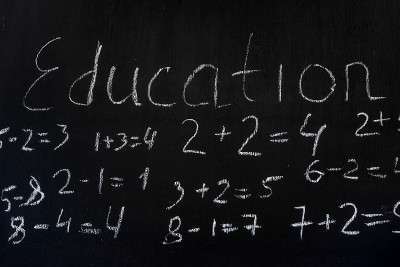 Education
5-2=3 1+3=4 2+2=4 2+
5=8 2-1=1 3+2=5 6-2=4
8-4=4 8-1=7 7+2=9